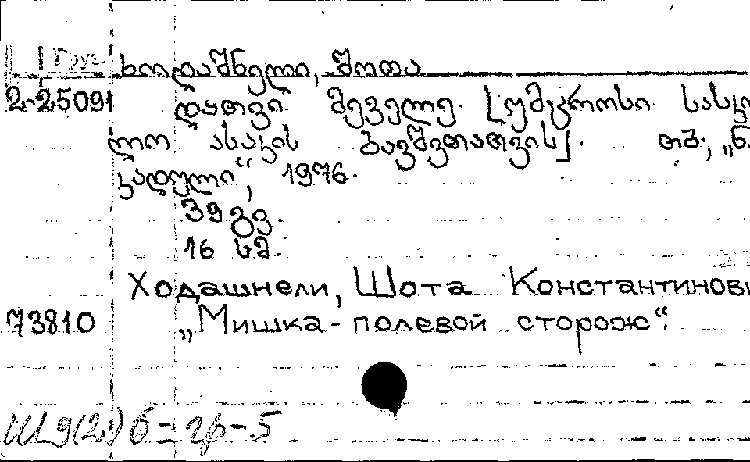 ხოდაშნელი, შოთა
2-25091 დათვი მეველე. [უმცროსი სასკო
ლო ასაკის ბავშვთათვის]. თბ., „ნ.
კადული“, 1976.
39 გვ.
16 სმ.
Ходашнели, Шота Константинови
73810 „Мишка - полевой сторож“.